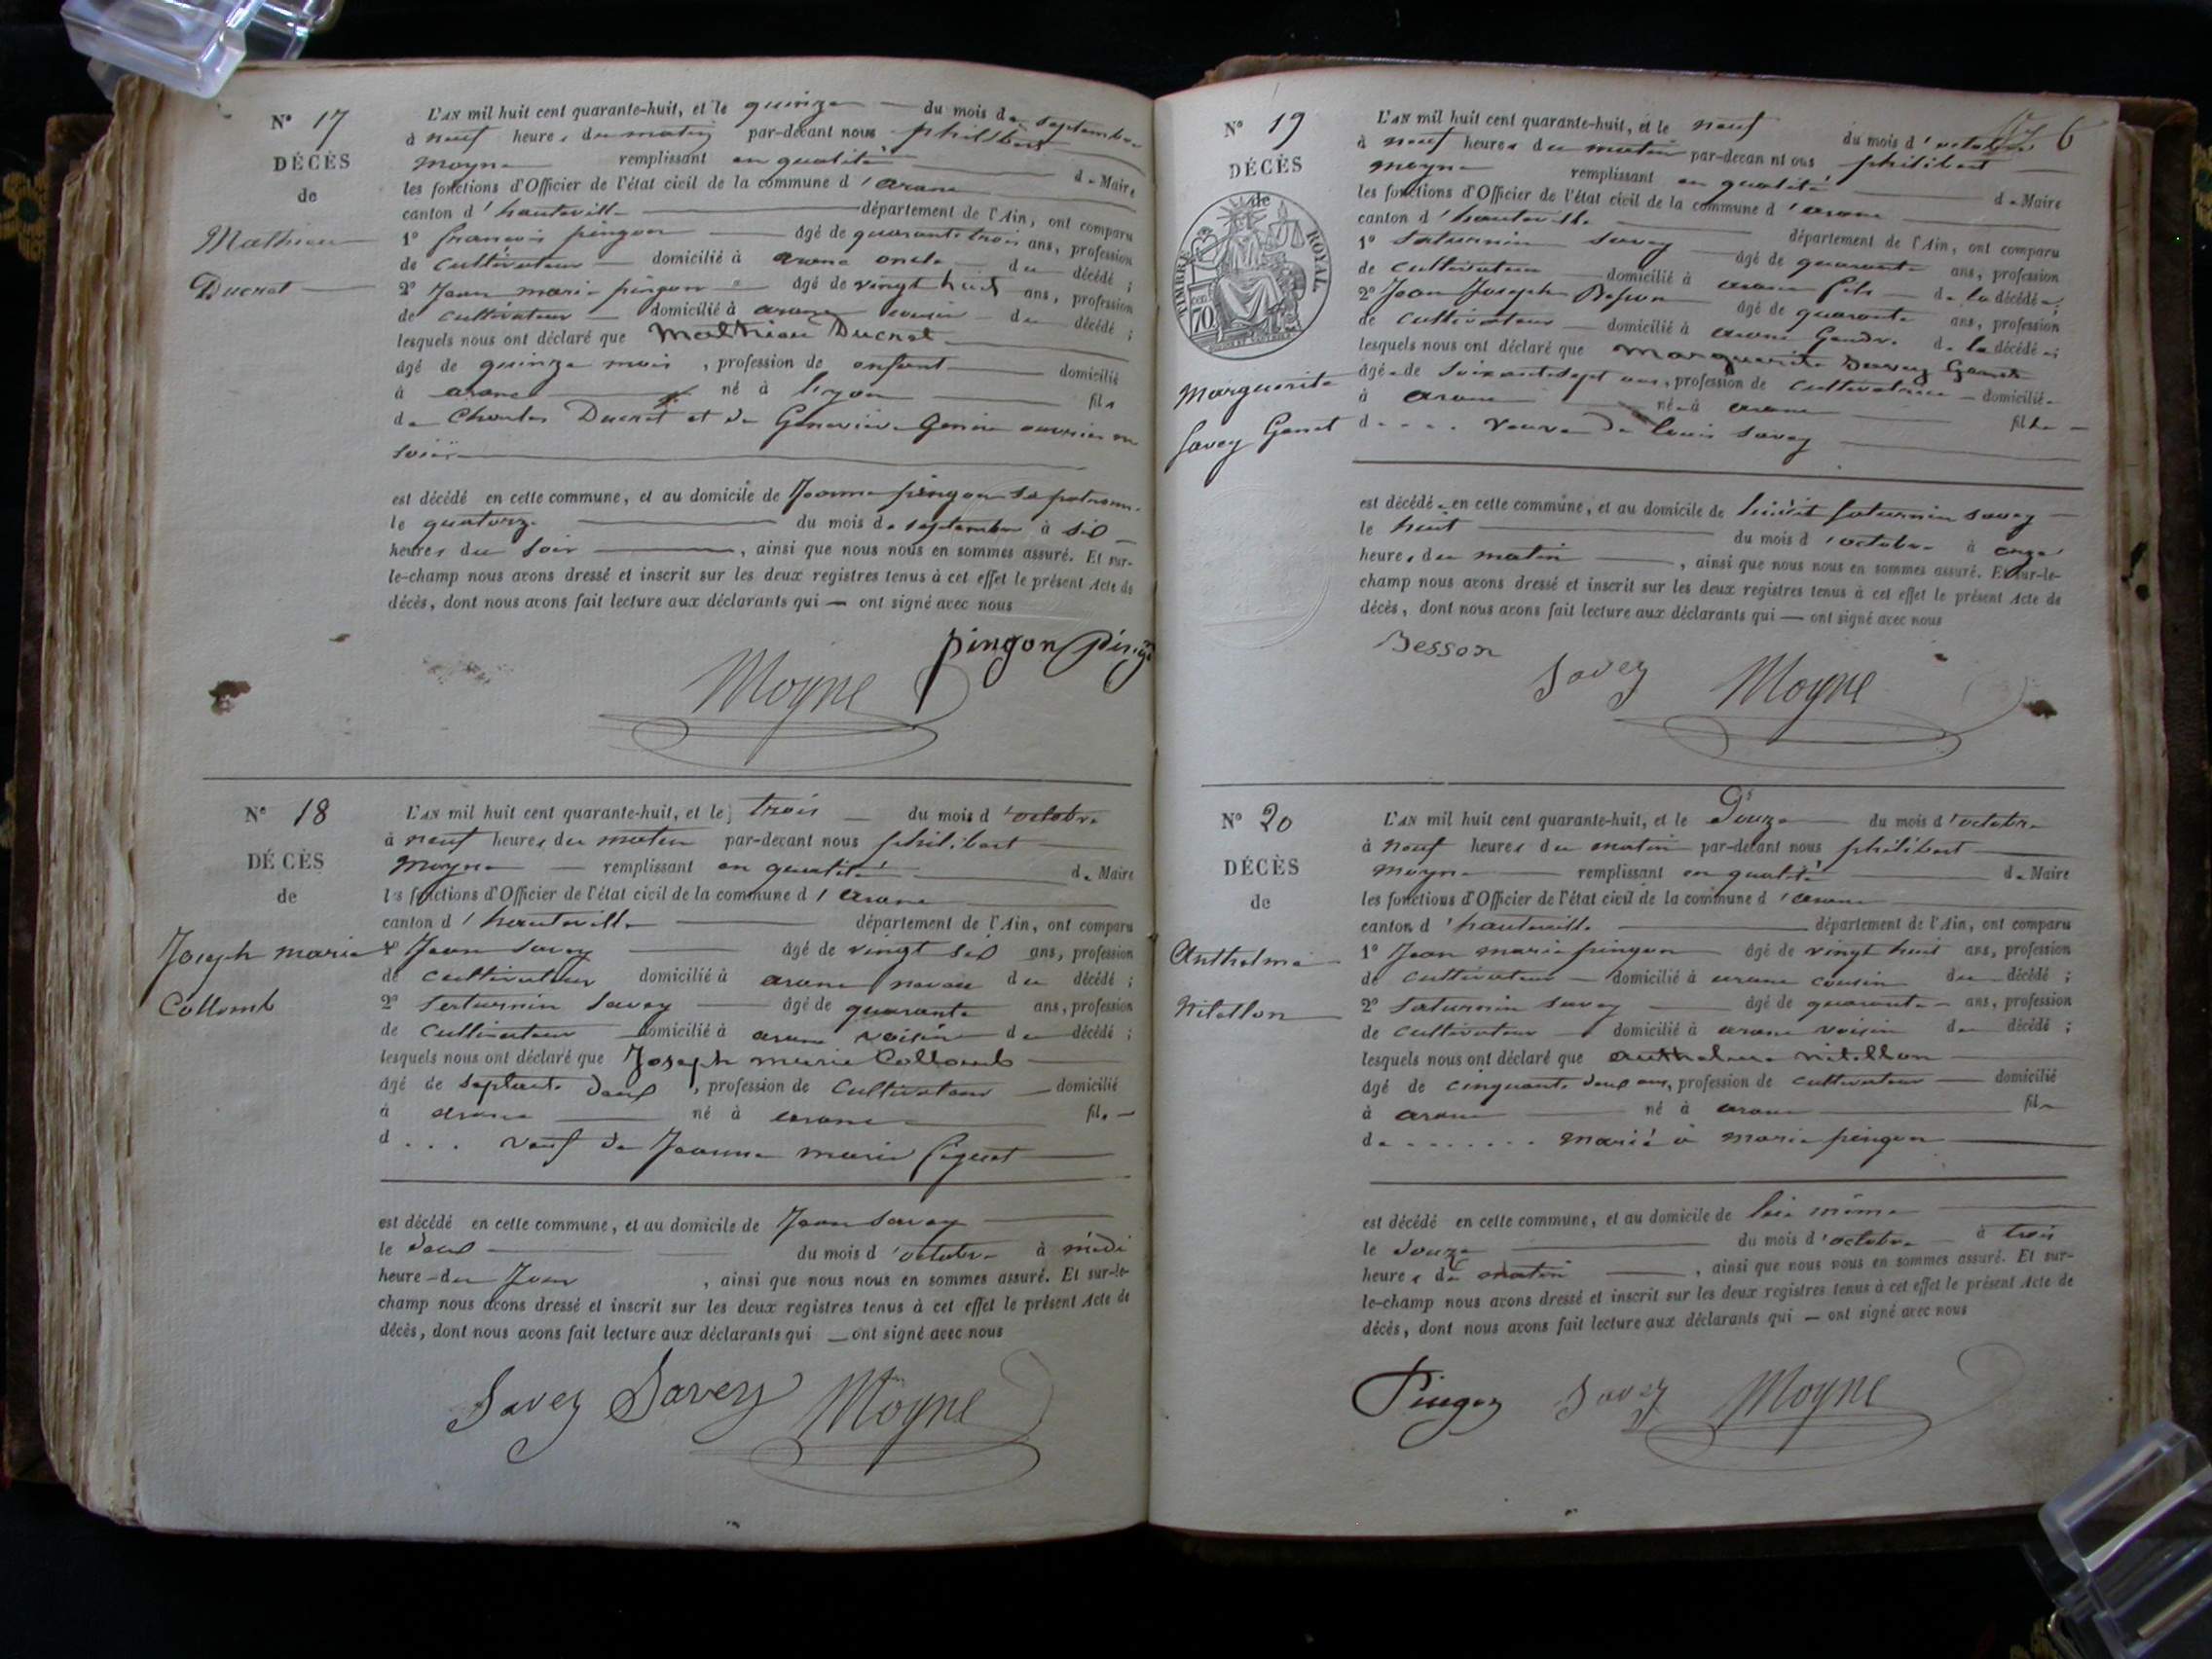 N° 17
DÉCÈS
de
Mathieu
Ducret
L'AN mil huit cent quarante-huit, et le quinze du mois de septembre
à neuf heures du matin par-devant nous philibert
moyne remplissant en qualité de Maire
les fonctions d'Officier de l'état civil de la commune d'arane
canton d'hauteville département de l'Ain, ont comparu
1° françois pingon âgé de quarante trois ans, profession
de cultivateur domicilié à arane oncle du décédé ;
2° Jean marie pingon âgé de vingt huit ans, profession
de cultivateur domicilié à arane cousin du décédé ;
lesquels nous ont déclaré que Mathieu Ducret
âgé de quinze mois, profession de enfant domicilié
à arane né à lyon fils
de Charles Ducret et de Geneviève ouvrier en
soie
est décédé en cette commune, et au domicile de Jeanne pingon
le quatorze du mois de septembre à six
heures du soir, ainsi que nous nous en sommes assuré. Et sur-
le-champ nous avons dressé et inscrit sur les deux registres tenus à cet effet le présent Acte de
décès, dont nous avons fait lecture aux déclarants qui — ont signé avec nous
pingon
Moyne
N° 18
DÉCÈS
de
Joseph marie
Collomb
L'AN mil huit cent quarante-huit, et le trois du mois d'octobre
à neuf heures du matin par-devant nous philibert
Moyne remplissant en qualité de Maire
les fonctions d'Officier de l'état civil de la commune d'arane
canton d'hauteville département de l'Ain, ont comparu
1° Jean Savey âgé de vingt six ans, profession
de cultivateur domicilié à arane neveu du décédé ;
2° Saturnin Savey âgé de quarante ans, profession
de cultivateur domicilié à arane voisin du décédé ;
lesquels nous ont déclaré que Joseph marie Collomb
âgé de septante deux, profession de cultivateur domicilié
à arane né à arane fils
d . . . veuf de Jeanne marie
est décédé en cette commune, et au domicile de Jean Savey
le deux du mois d'octobre à midi
heure du Jour, ainsi que nous nous en sommes assuré. Et sur-le-
champ nous avons dressé et inscrit sur les deux registres tenus à cet effet le présent Acte de
décès, dont nous avons fait lecture aux déclarants qui — ont signé avec nous
Savey Savey Moyne
6
N° 19
DÉCÈS
de
TIMBRE ROYAL
70
Marguerite
Savey Genet
L'AN mil huit cent quarante-huit, et le neuf du mois d'octobre
à neuf heures du matin par-devan nt ous philibert
moyne remplissant en qualité de Maire
les fonctions d'Officier de l'état civil de la commune d'arane
canton d'hauteville département de l'Ain, ont comparu
1° Saturnin Savey âgé de quarante ans, profession
de cultivateur domicilié à arane fils de la décédée ;
2° Jean Joseph Besson âgé de quarante ans, profession
de cultivateur domicilié à arane Gendre de la décédée ;
lesquels nous ont déclaré que Marguerite Savey Genet
âgée de soixante sept ans, profession de cultivatrice domiciliée
à arane née à arane fille
d . . . . veuve de louis Savey
est décédée en cette commune, et au domicile de Saturnin Savey
le huit du mois d'octobre à onze
heures du matin, ainsi que nous nous en sommes assuré. Et sur-le-
champ nous avons dressé et inscrit sur les deux registres tenus à cet effet le présent Acte de
décès, dont nous avons fait lecture aux déclarants qui — ont signé avec nous
Besson Savey Moyne
N° 20
DÉCÈS
de
Anthelme
Nitellon
L'AN mil huit cent quarante-huit, et le Douze du mois d'octobre
à neuf heures du matin par-devant nous philibert
moyne remplissant en qualité de Maire
les fonctions d'Officier de l'état civil de la commune d'arane
canton d'hauteville département de l'Ain, ont comparu
1° Jean marie pingon âgé de vingt huit ans, profession
de cultivateur domicilié à arane cousin du décédé ;
2° Saturnin Savey âgé de quarante ans, profession
de cultivateur domicilié à arane voisin du décédé ;
lesquels nous ont déclaré que anthelme nitellon
âgé de cinquante deux ans, profession de cultivateur domicilié
à arane né à arane fils
de . . . . . . . marié à marie pingon
est décédé en cette commune, et au domicile de lui même
le douze du mois d'octobre à trois
heures du matin, ainsi que nous nous en sommes assuré. Et sur-
le-champ nous avons dressé et inscrit sur les deux registres tenus à cet effet le présent Acte de
décès, dont nous avons fait lecture aux déclarants qui — ont signé avec nous
Pingon Savey Moyne